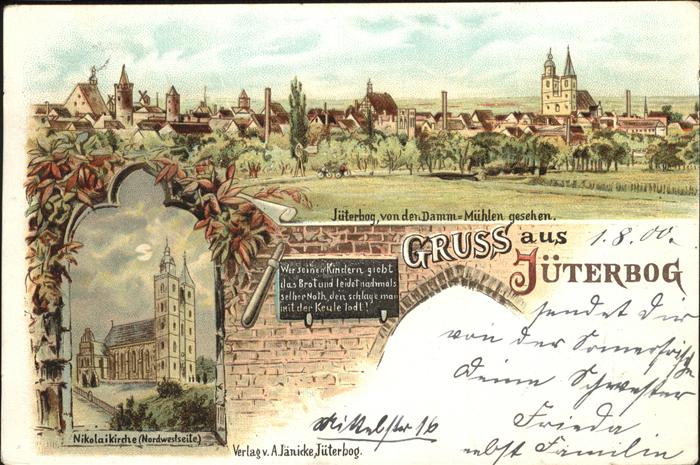 Jüterbog, von den Damm=Mühlen gesehen.
GRUSS aus
JÜTERBOG
1.8.00.
Wer seinen Kindern giebt
das Brot und leidet nachmals
selber Noth, den schlage man
mit der Keule todt!
sendet Dir
von der Sommerfrische
Deine Schwester
Frieda
nebst Familie
Mittelstr 16
Nikolaikirche (Nordwestseite)
Verlag v. A. Jänicke, Jüterbog.